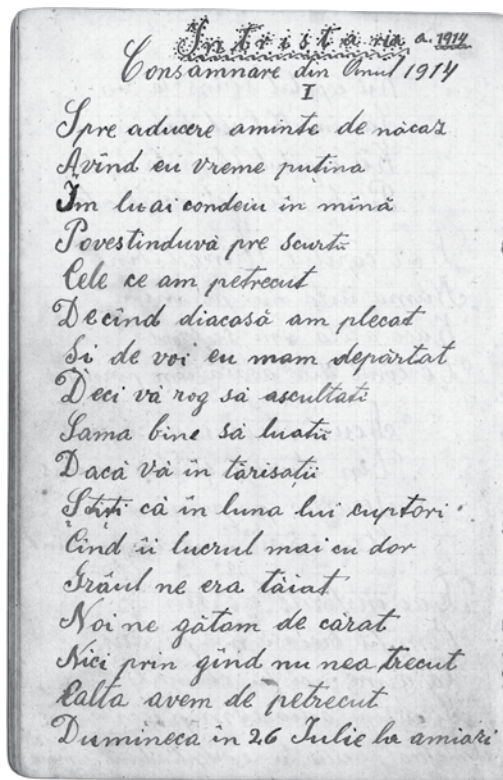 Intristaria a. 1914
Consămnare din Anul 1914
I
Spre aducere aminte de nàcaz
Avînd eu vreme puțina
Îm luai condeiu în mînă
Povestinduvă pre scurtŭ
Cele ce am petrecut
Decînd diacasă am plecat
Si de voi eu mam depărtat
Deci vă rog să ascultati
Sama bine să luatii
Dacă vă în tărisații
Stiți că în luna lui cuptori
Cind ii lucrul mai cu dor
Grăul ne era tăiat
Noi ne gătam de carat
Nici prin gind nu nea trecut
Calta avem de petrecut
Dumineca in 26 Iulie la amiazi